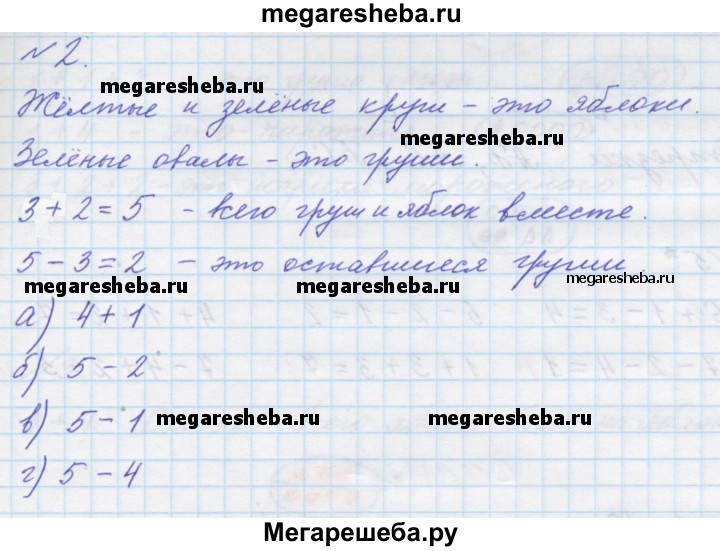 megaresheba.ru
№ 2.
megaresheba.ru
Жёлтые и зелёные круги – это яблоки.
megaresheba.ru
Зелёные овалы – это груши.
3 + 2 = 5 – всего груш и яблок вместе.
5 – 3 = 2 – это оставшиеся груши
megaresheba.ru megaresheba.ru megaresheba.ru
а) 4 + 1
б) 5 – 2
в) 5 – 1 megaresheba.ru megaresheba.ru
г) 5 – 4
Мегарешеба.ру